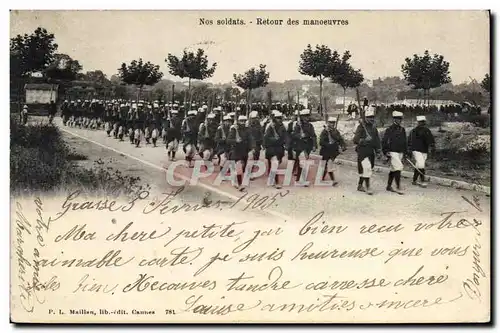 Nos soldats. - Retour des manoeuvres
CPARAMA
Grasse 5 Février 1905
Ma chère petite, j'ai bien reçu votre
aimable carte, je suis heureuse que vous
alliez bien, Recevez tendre caresse chère
Louise amitiés sincère
Marguerite
P. L. Maillan, lib.-édit. Cannes 781